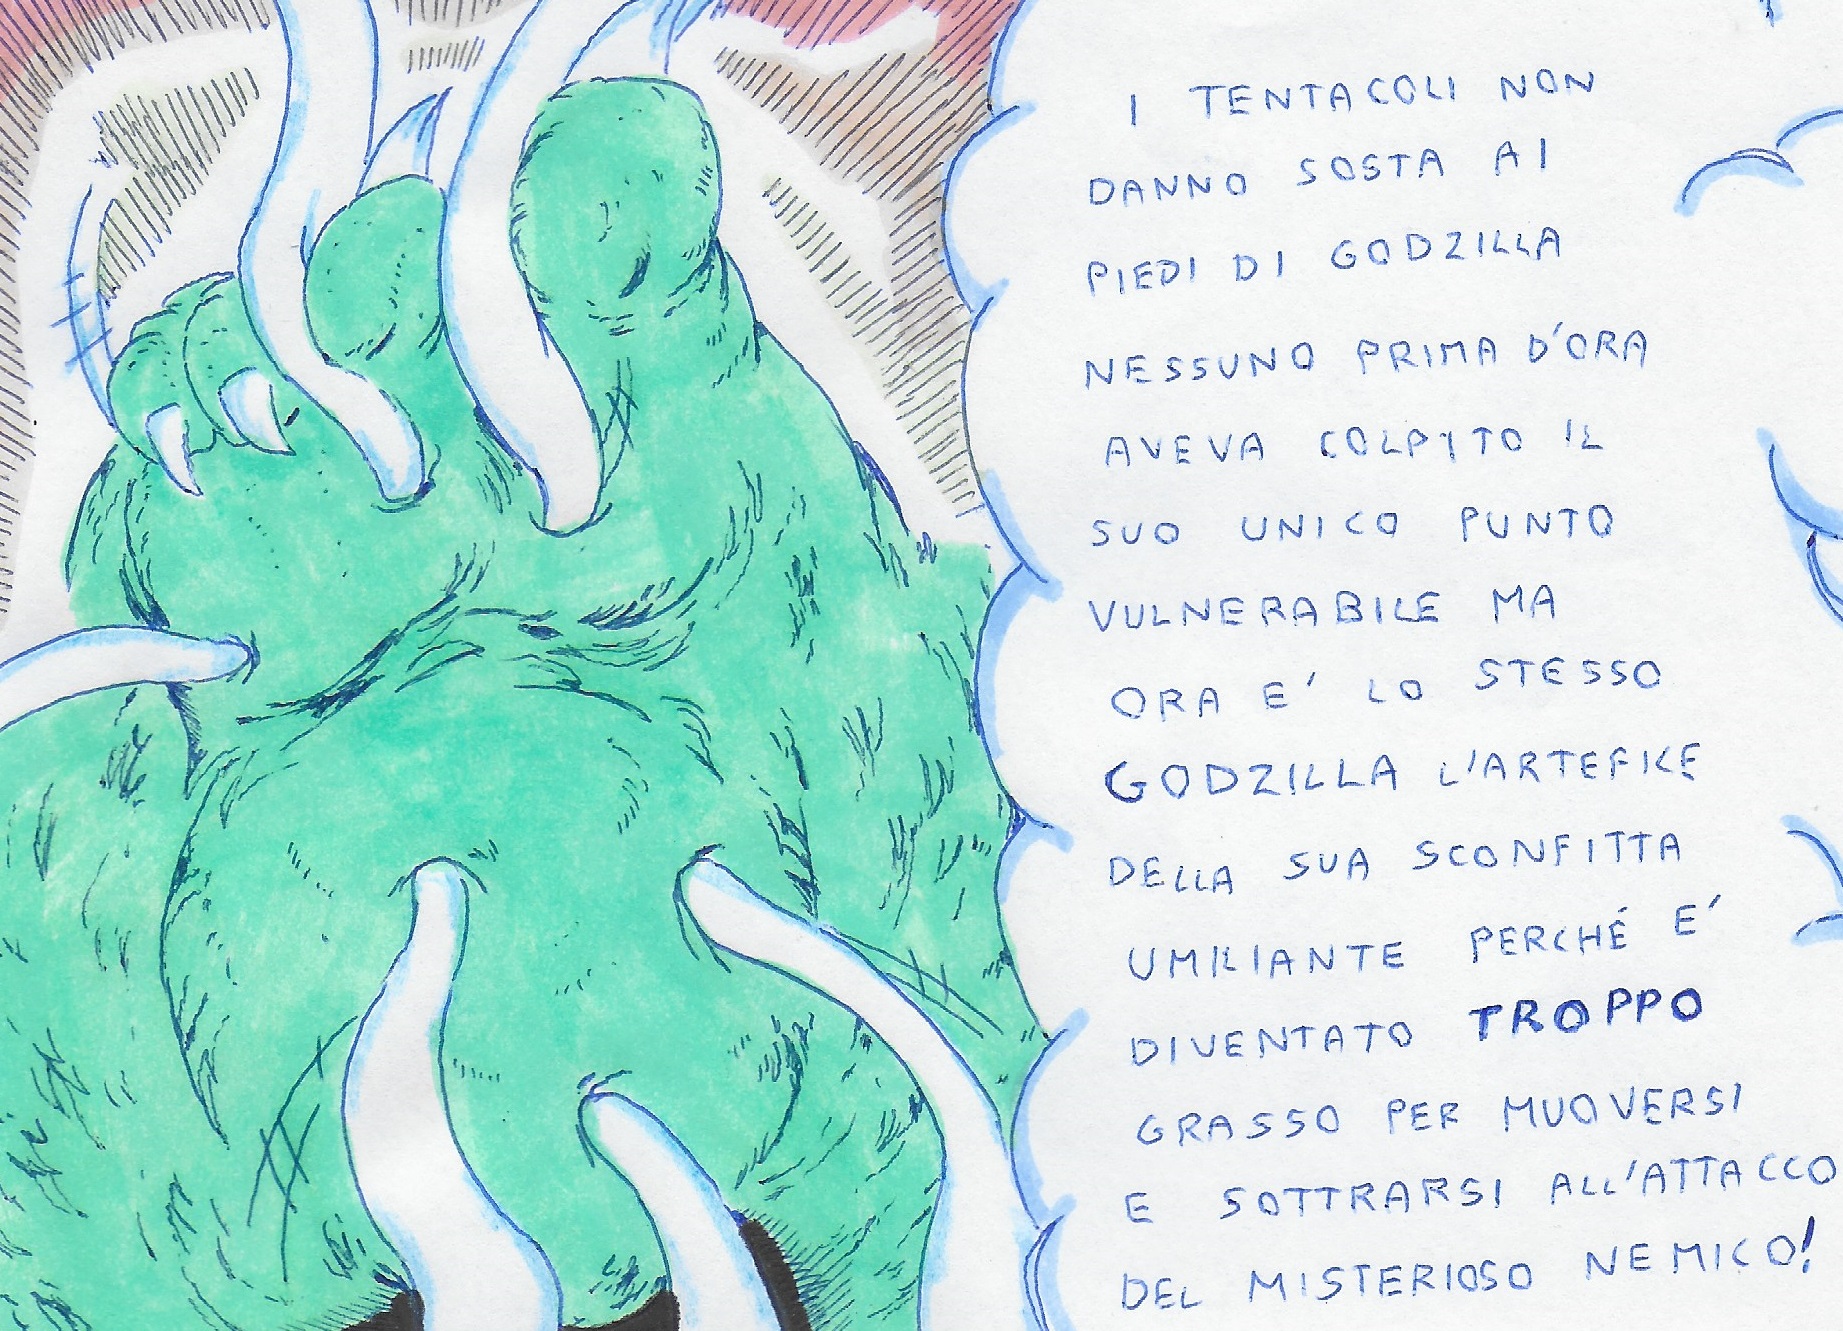 I TENTACOLI NON
DANNO SOSTA AI
PIEDI DI GODZILLA
NESSUNO PRIMA D'ORA
AVEVA COLPITO IL
SUO UNICO PUNTO
VULNERABILE MA
ORA E' LO STESSO
GODZILLA L'ARTEFICE
DELLA SUA SCONFITTA
UMILIANTE PERCHÉ E'
DIVENTATO TROPPO
GRASSO PER MUOVERSI
E SOTTRARSI ALL'ATTACCO
DEL MISTERIOSO NEMICO!